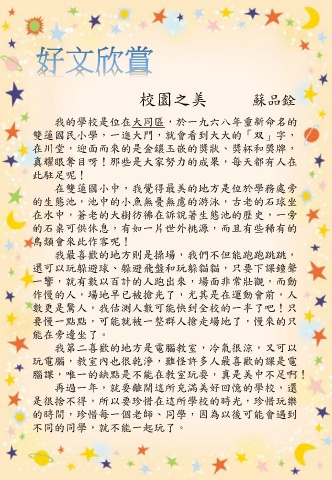 好文欣賞
校園之美　蘇品銓
我的學校是位在大同區，於一九六八年重新命名的
雙蓮國民小學，一進大門，就會看到大大的「双」字，
在川堂，迎面而來的是金鑲玉嵌的獎狀、獎杯和獎牌，
真耀眼奪目呀！那些是大家努力的成果，每天都有人在
此駐足呢！
在雙蓮國小中，我覺得最美的地方是位於學務處旁
的生態池，池中的小魚無憂無慮的游泳，古老的石球坐
在水中，蒼老的大樹彷彿在訴說著生態池的歷史，一旁
的石桌可供休息，有如一片世外桃源，而且有些稀有的
鳥類會來此作客呢！
我最喜歡的地方則是操場，我們不但能跑跑跳跳，
還可以玩躲避球、躲避飛盤和玩躲貓貓，只要下課鐘聲
一響，就有數以百計的人跑出來，場面非常壯觀，而動
作慢的人，場地早已被搶光了，尤其是在運動會前，人
數更是驚人，我估測人數可能快到全校的一半了吧！只
要慢一點點，可能就被一整群人搶走場地了，慢來的只
能在旁邊坐了。
我第二喜歡的地方是電腦教室，冷氣很涼，又可以
玩電腦，教室內也很乾淨，難怪許多人最喜歡的課是電
腦課，唯一的缺點是不能在教室玩耍，真是美中不足啊！
再過一年，就要離開這所充滿美好回憶的學校，還
是很捨不得，所以要珍惜在這所學校的時光，珍惜玩樂
的時間，珍惜每一個老師、同學，因為以後可能會遇到
不同的同學，就不能一起玩了。